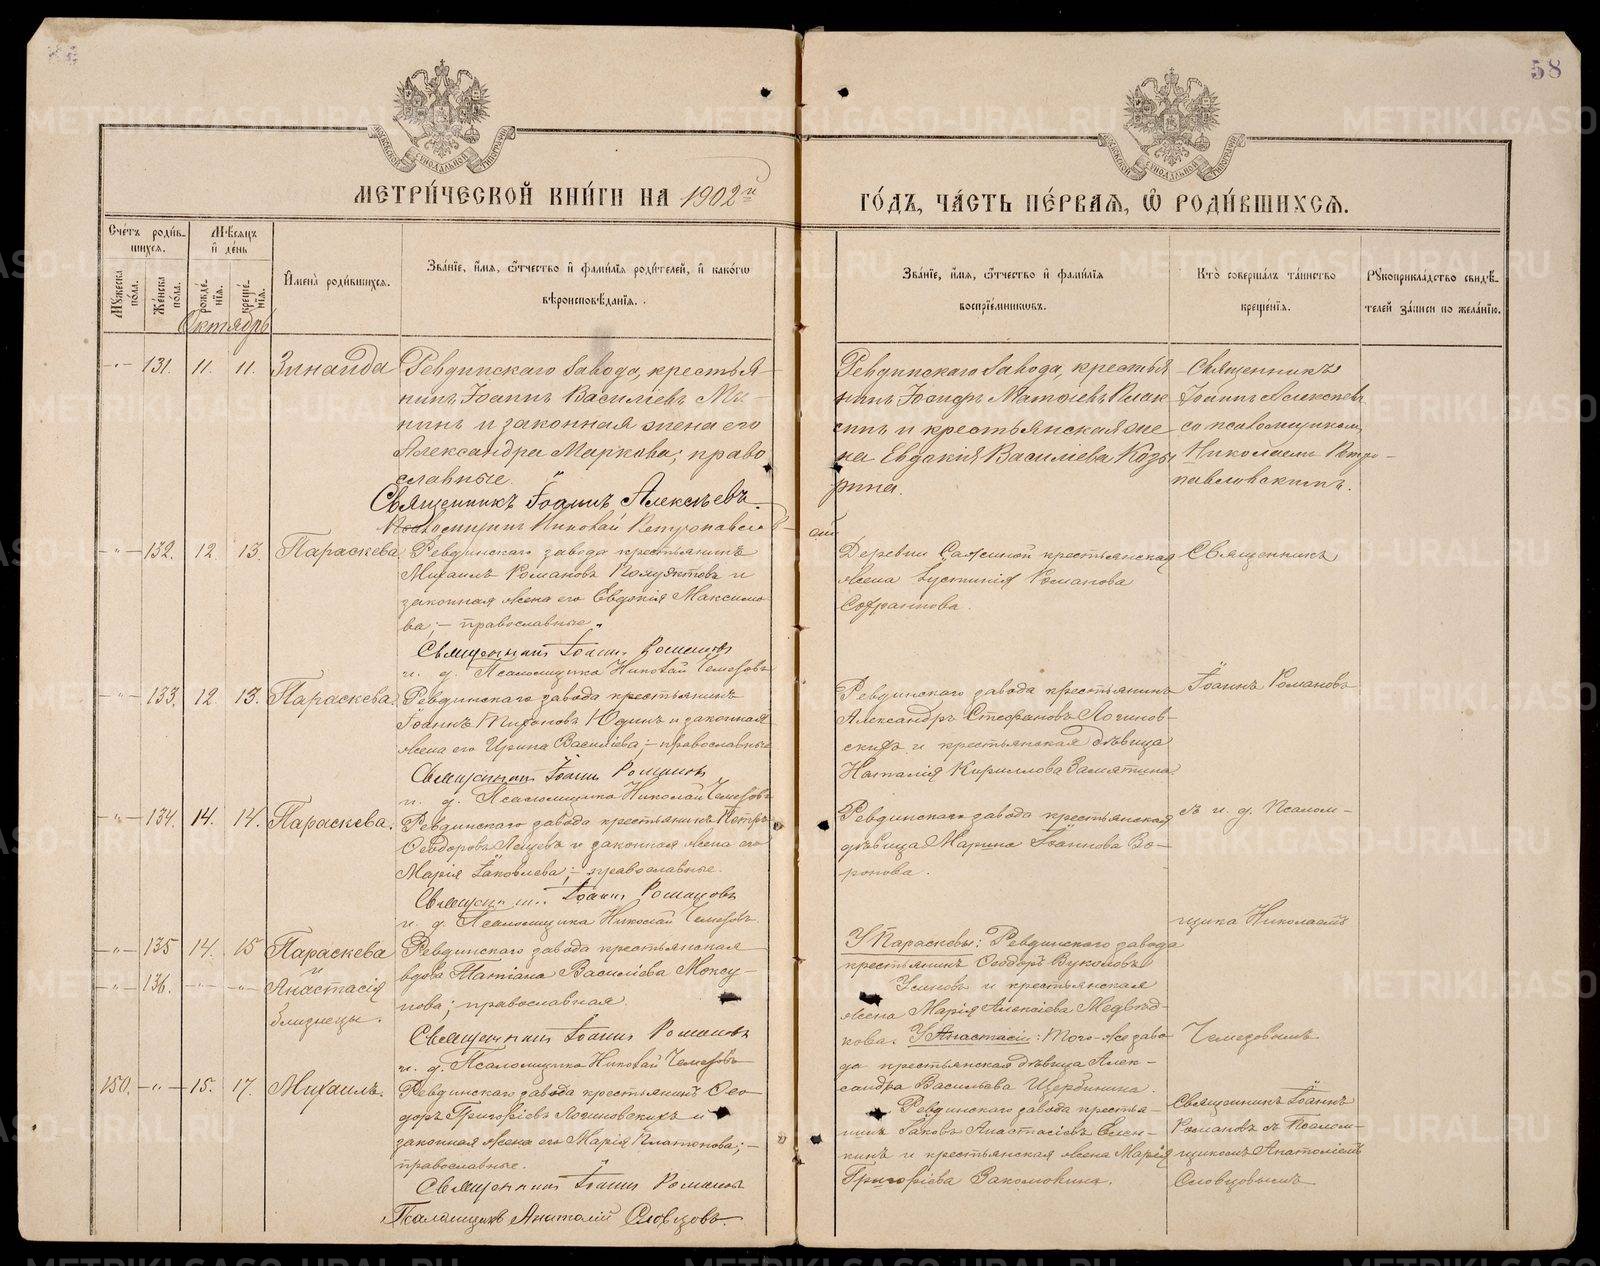 58
МЕТРИ́ЧЕСКОЙ КНИ́ГИ НА 1902й
ГО́ДЪ, ЧА́СТЬ ПЕ́РВАЯ, Ѡ РОДИ́ВШИХСЯ.
Счетъ родив-
шихся.
Мѣсяцъ
и день
Мужеска пола.
Женска пола.
рождѣ-
нія.
креще-
нія.
Имена родившихся.
Званіе, имя, отчество и фамилія родителей, и какогѡ
вѣроисповѣданія.
Званіе, имя, отчество и фамилія
воспріемниковъ.
Кто совершалъ таинство
крещенія.
Рукоприкладство свидѣ-
телей записи по желанію.
Октябрь
131. 11. 11. Зинаида
Ревдинскаго завода, крестья-
нинъ Іоаннъ Василіевъ
и законная жена его
Александра Маркова; право
славные.
Священникъ Іоаннъ Алексѣевъ.
Псаломщикъ Николай Петропавловскій
Ревдинскаго завода, крестья
нинъ
и крестьянская же
на Евдокія Василіева Козы
рина.
Священникъ
Іоаннъ Алексѣевъ
со псаломщикомъ
Николаемъ Петро-
павловскимъ.
132. 12. 13. Параскева
Ревдинскаго завода крестьянинъ
Михаилъ Романовъ и
законная жена его Евдокія Максимо
ва; - православные.
Священникъ Іоаннъ Романовъ
и. д. Псаломщика Николай Чемезовъ
Деревни крестьянская
жена Іустинія Романова
Софранкова.
Священникъ
133. 12. 13. Параскева.
Ревдинскаго завода крестьянинъ
Іоаннъ Тихоновъ Юдинъ и законная
жена его Ирина Василіева; - православные
Священникъ Іоаннъ Романовъ
и. д. Псаломщика Николай Чемезовъ
Ревдинскаго завода крестьянинъ
Александръ Стефановъ Логинов-
скихъ и крестьянская дѣвица
Наталія Кириллова Замятина.
Іоаннъ Романовъ
134. 14. 14. Параскева.
Ревдинскаго завода крестьянинъ Петръ
Ѳеодоровъ и законная жена его
Марія Іаковлева; - православные.
Священникъ Іоаннъ Романовъ
и. д. Псаломщика Николай Чемезовъ
Ревдинскаго завода крестьянская
дѣвица Марина Іоаннова Во-
ронова.
съ и. д. Псалом-
щика Николаемъ
135 14. 15 Параскева
и
136. Анастасія
близнецы.
Ревдинскаго завода крестьянская
вдова Татіана Василіева Моксу-
нова; православная.
Священникъ Іоаннъ Романовъ
и. д. Псаломщика Николай Чемезовъ
У Параскевы: Ревдинскаго завода
крестьянинъ Ѳеодоръ Вуколовъ
и крестьянская
жена Марія Алексіева Медвѣд-
кова. У Анастасіи: того-же заво
да крестьянская дѣвица Алек-
сандра Васильева Щербинина.
Чемезовымъ
150. 15. 17. Михаилъ.
Ревдинскаго завода крестьянинъ Ѳео-
доръ Григоріевъ Логиновскихъ и
законная жена его Марія Платонова; -
православные.
Священникъ Іоаннъ Романовъ
Псаломщикъ Анатолій Словцовъ.
Ревдинскаго завода крестья-
нинъ Іаковъ Анастасіевъ
и крестьянская жена Марія
Григоріева Закомокина.
Священникъ Іоаннъ
Романовъ съ Псалом-
щикомъ Анатоліемъ
Словцовымъ